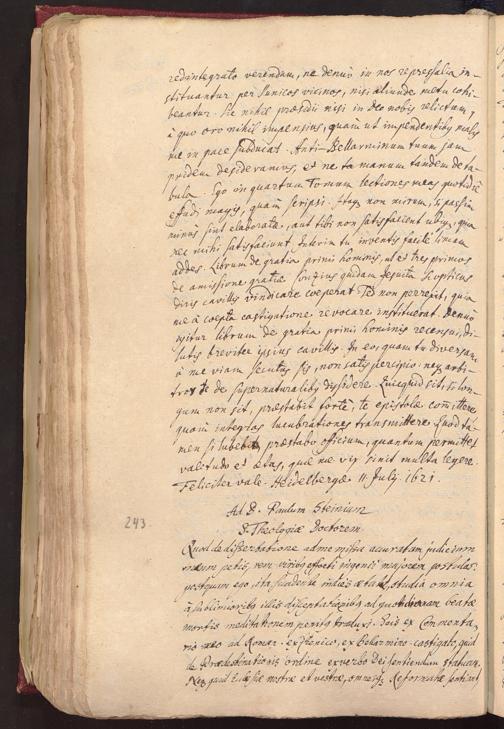 redintegrato verendum, ne denuò in nos repressalia in-
stituantur per Punicos vicinos, nisi aliunde metu cohi-
beantur. Sic nihil præsidii nisi in Deo nobis relictum,
à quo oro nihil impensius, quàm ut impendentibus malis
me in pace subducat. Anti-Bellarminum tuum jam
pridem desideramus, et ne tu manum tandem de ta-
bula. Ego in quartum Tomum lectiones meas quotidie
effudi magis, quàm scripsi. Itaque non mirum, si passim
minus sint elaborata, aut tibi non satisfaciant ubique, quæ
nec mihi satisfaciunt. Interim tu inventis facilè limam
addes. Librum de gratia primi hominis, ut et tres primos
de amissione gratiæ quidam Jesuita Scopticus
diris cavillis vindicare coeperat. Sed non perrexit, quia
me à coepta castigatione revocare instituerat. Denuò
igitur librum de gratia primi hominis recensui, di-
lutis breviter ipsius cavillis. In eo, quam tu diversam
à me viam secutus sis, non satis percipio: nec arbi-
tror te de supernaturalibus dissidere. Quicquid sit, si lon-
gum non sit, præstabit fortè, te epistolæ committere,
quàm integras lucubrationes transmittere. Quod ta-
men si lubebit, præstabo officium, quantum permittet
valetudo et ætas, quæ me vix sinit multa legere.
Feliciter vale. Heidelbergæ 11 Julij. 1621.
Ad D. Paulum Steinium
S. Theologiæ Doctorem.
243
Quod de dissertatione ad me missa accuratum judicium
meum petis, rem viribus effoeti ingenii majorem postulas:
postquam ego, ita suadente ætate, studia omnia
à sublimioribus illis disceptationibus ad quotidianam beatæ
mortis meditationem penitus traduxi. Scis ex Commenta-
rio meo ad Roman. ex Irenico, ex Belarmino castigato, quid
de Prædestinationis ordine ex verbo Dei sentiendum statuam.
Nec, quid Ecclesiæ nostræ et vestræ, omnesque Reformatæ sentiant